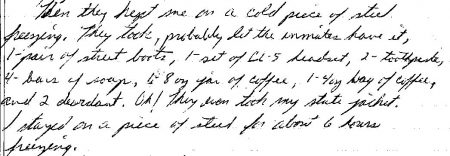 Then they kept me on a cold piece of steel
freezing. They took, probably let the inmates have it,
1-pair of street boots, 1-set of CL-5 headset, 2-toothpaste,
4-bars of soap, 1- 8 oz jar of coffee, 1-4oz bag of coffee,
and 2 deordant. Oh! They even took my state jacket.
I stayed on a piece of steel for about 6 hours
freezing.